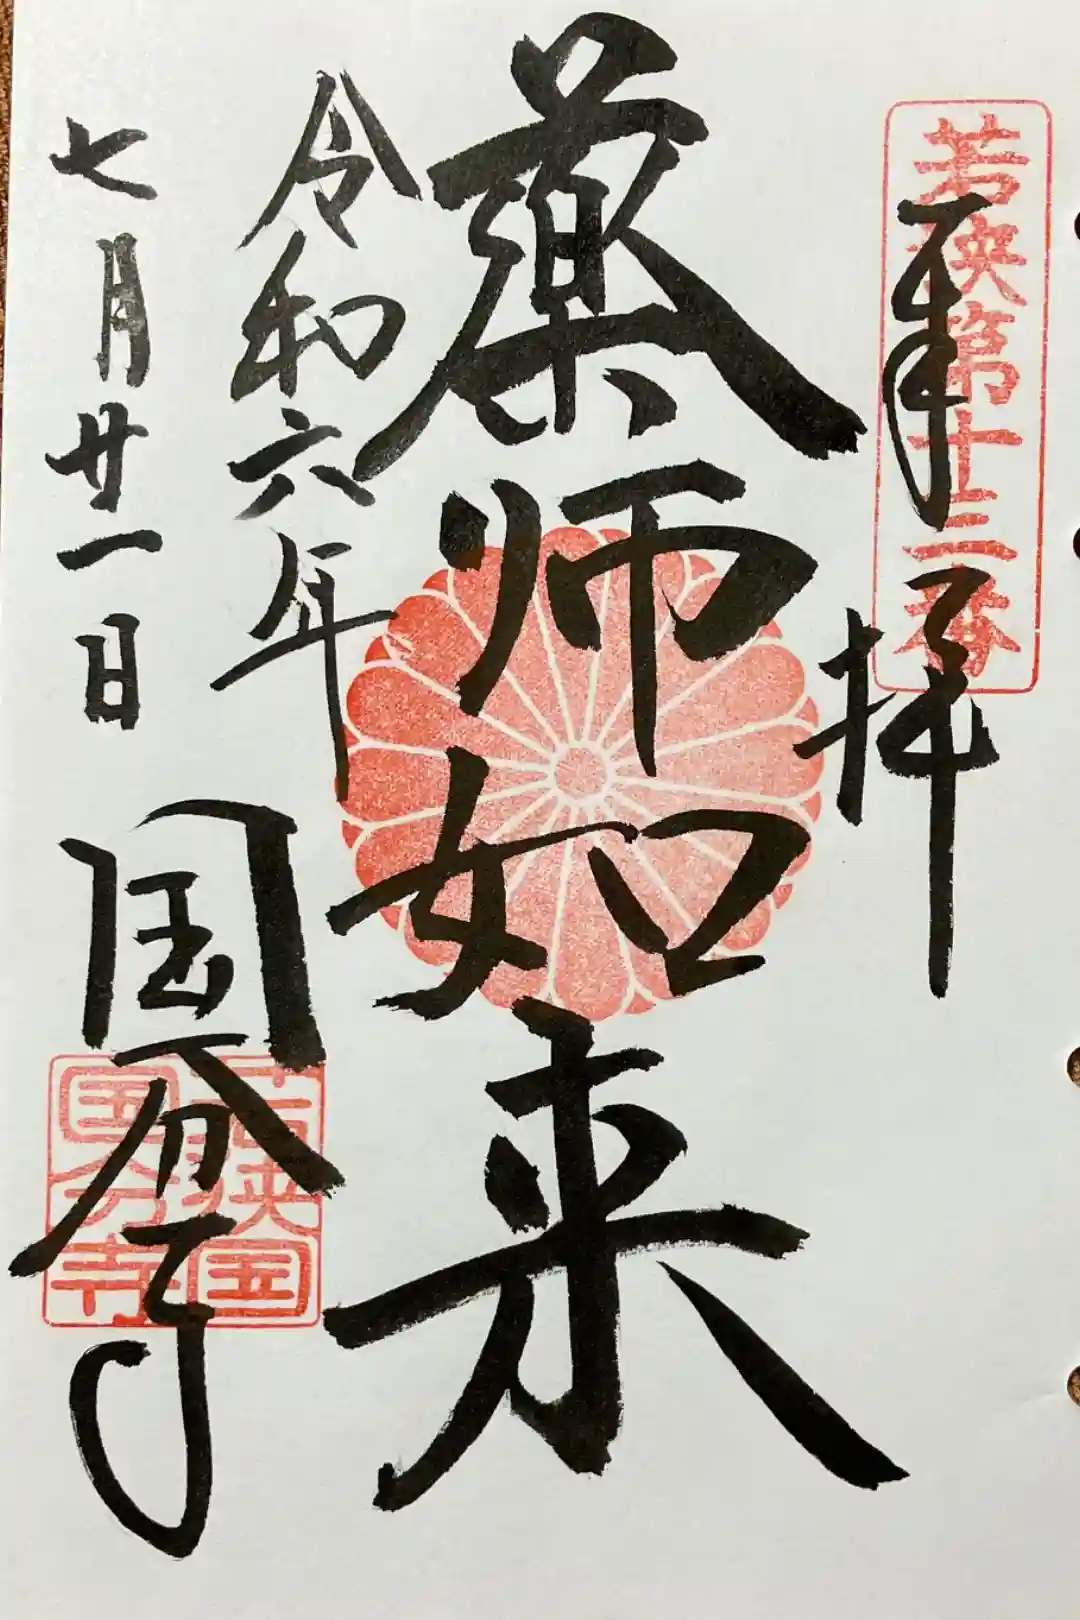 若狭第十三番
奉拝
薬師如来
令和六年
七月廿一日
国分寺
若狭国
国分寺